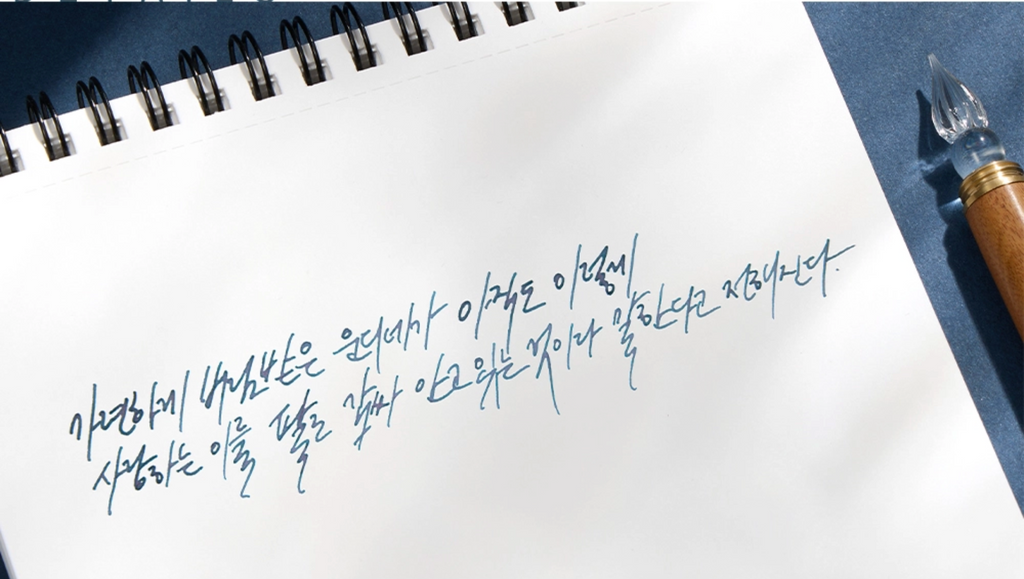 가련하게 버림받은 운디네가 아직도 이렇게
사랑하는 이를 팔로 감싸 안고 있는 것이라 말한다고 전해진다.